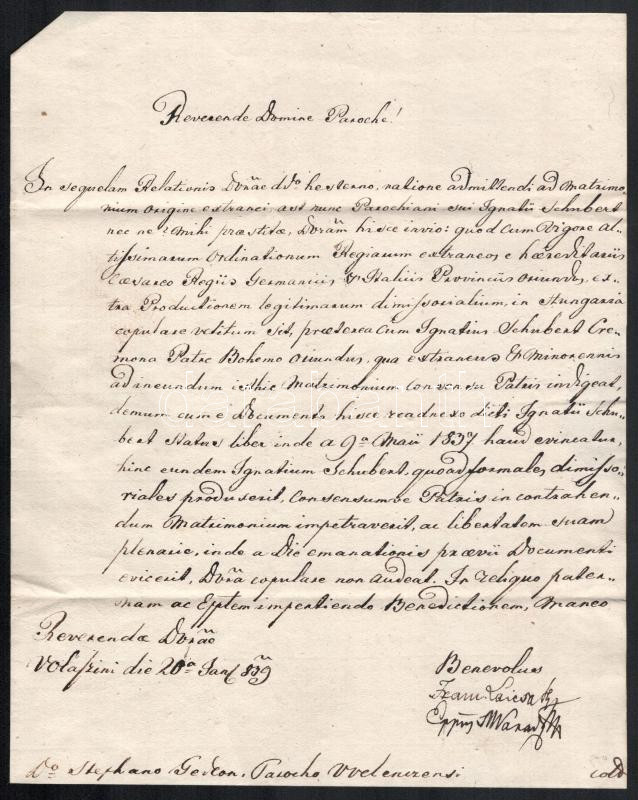 Reverende Domine Paroche!
In sequelam Relationis Dvrãe ddto hesterno, ratione admittendi ad Matrimo-
nium origine extranei, ast nunc Parochiani sui Ignatii Schubert
nec ne? Mihi præstitæ, Dvrãm hisce invio: quod cum Vigore Al-
tissimarum Ordinationum Regiarum extraneos e hæreditariis
Cæsareo Regiis Germanicis & Italicis Provinciis oriundos, ex-
tra Productionem legitimarum dimissorialium, in Hungaria
copulare vetitum sit, præterea cum Ignatius Schubert Cre-
mona Patre Bohemo oriundus, qua extraneus & Minorennis
ad ineundum isthic Matrimonium consensu Patris indigeat,
demum cum e Documento hisce readnexo dicti Ignatii Schu-
bert status liber inde a 9a Maii 1837 haud evincatur,
hinc eundem Ignatium Schubert, quoad formales dimisso-
riales produxerit, Consensumve Patris in contrahen-
dum Matrimonium impetraverit, ac libertatem suam
plenarie, inde a Die emanationis prævii Documenti
evicerit, Dvrã copulare non audeat. In reliquo pater-
nam ac Epptem impertiendo Benedictionem, Maneo
Reverendæ Dvrãe
die 20a Jan 839
Benevolus
Eppus
Do Stephano Gedeon, Parocho